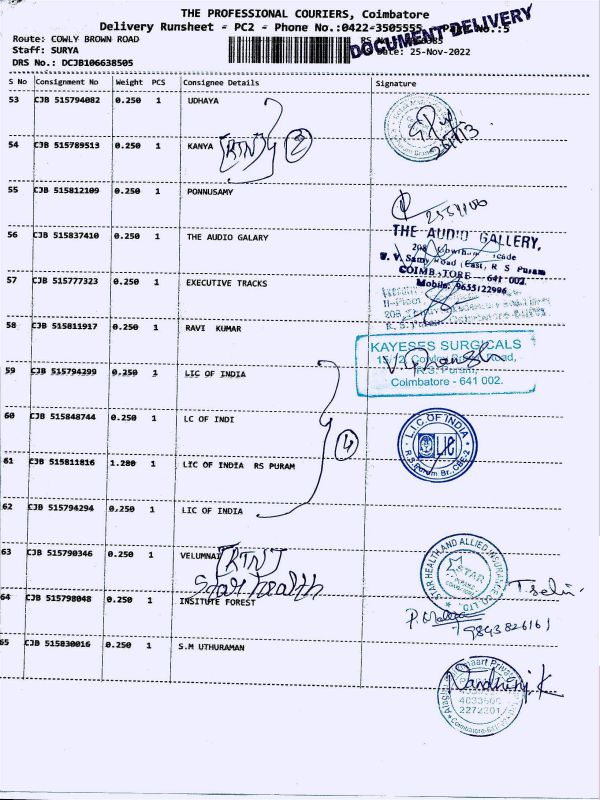 THE PROFESSIONAL COURIERS, Coimbatore
Delivery Runsheet - PC2 - Phone No.:0422-3505555
:5
Route: COWLY BROWN ROAD
DOCUMENT DELIVERY
Staff: SURYA
Date: 25-Nov-2022
DRS No.: DCJB106638505
S No Consignment No Weight PCS Consignee Details Signature
53 CJB 515794082 0.250 1 UDHAYA
54 CJB 515789513 0.250 1 KANYA
(RTN) 2
55 CJB 515812109 0.250 1 PONNUSAMY
56 CJB 515837410 0.250 1 THE AUDIO GALARY
THE AUDIO GALLERY,
COIMBATORE 641 002.
Mobile: 9655122996
57 CJB 515777323 0.250 1 EXECUTIVE TRACKS
58 CJB 515811917 0.250 1 RAVI KUMAR
KAYESES SURGICALS
Road,
R.S. Puram,
Coimbatore - 641 002.
59 CJB 515794299 0.250 1 LIC OF INDIA
60 CJB 515848744 0.250 1 LC OF INDI
4
L.I.C OF INDIA
LIC
R.S.Puram Br. CBE-2
61 CJB 515811816 1.280 1 LIC OF INDIA RS PURAM
62 CJB 515794294 0.250 1 LIC OF INDIA
63 CJB 515790346 0.250 1 VELUMNAI
(RTN)
Star health
STAR HEALTH AND ALLIED INSURANCE CO LTD
STAR
T. Selvi
64 CJB 515798048 0.250 1 INSITUTE FOREST
9843826161
65 CJB 515830016 0.250 1 S.M UTHURAMAN
Nandhini K
4033600
2272201